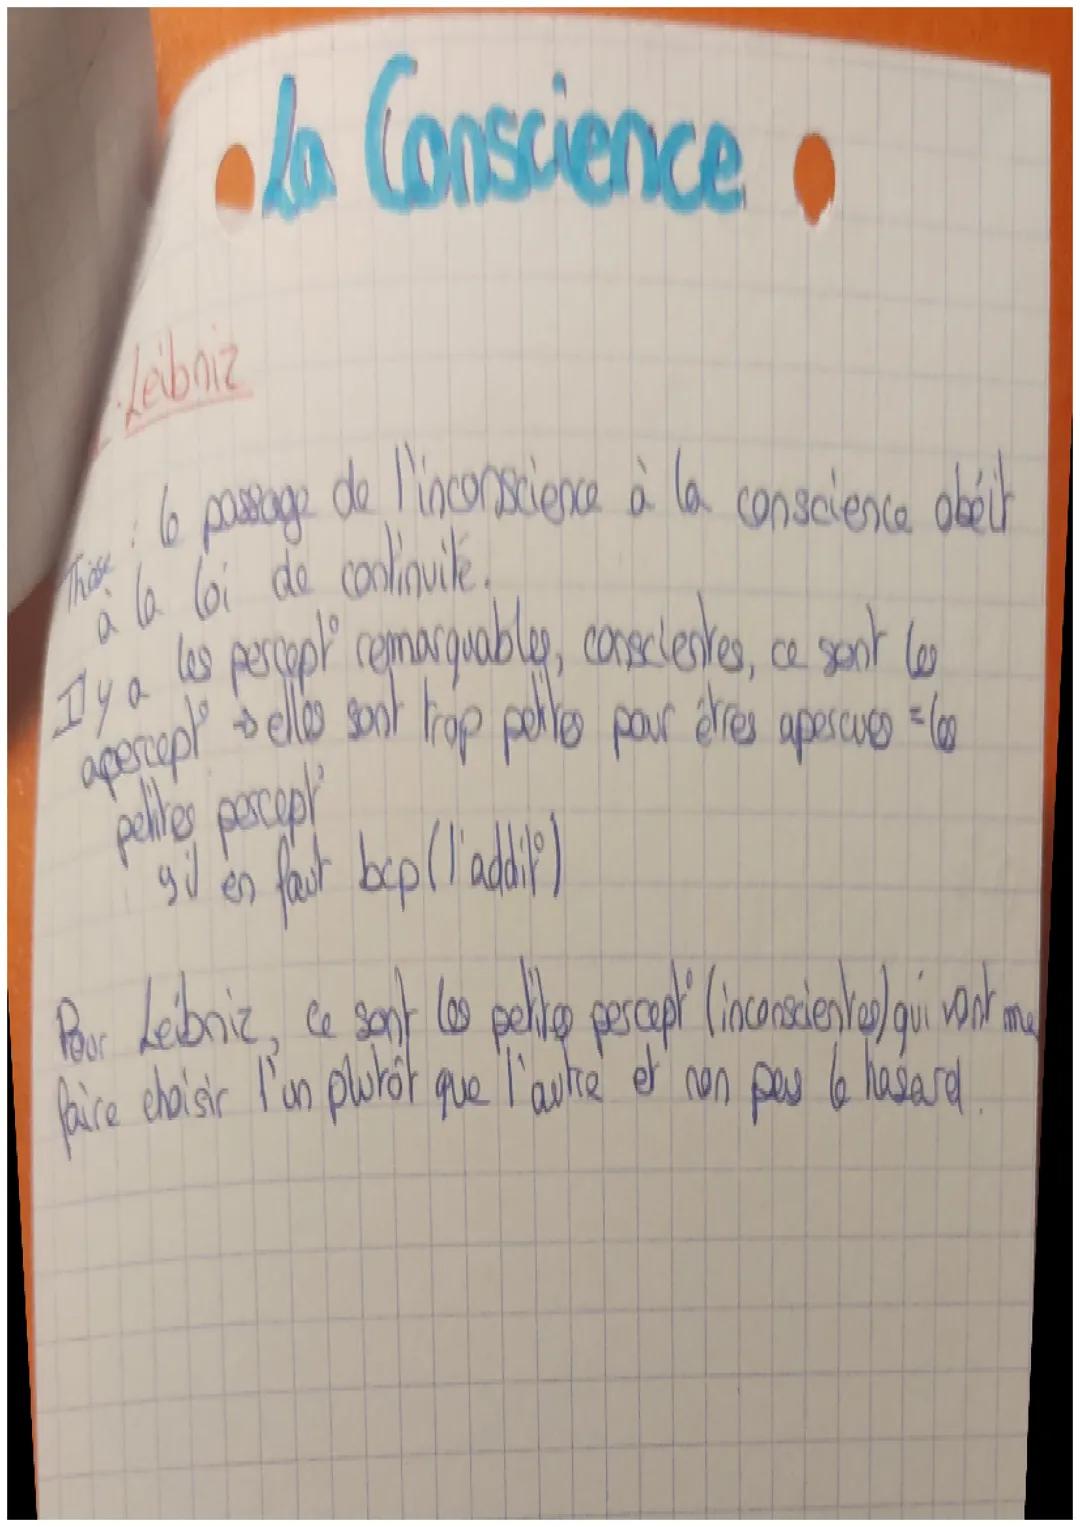 La Conscience
Leibniz
Thèse : le passage de l'inconscience à la conscience obéit
à la loi de continuité.
Il y a les percept° remarquables, conscientes, ce sont les
apercept° → elles sont trop petites pour êtres apercues = les
petites percept°
↳ il en faut bcp (l'addit°)
Pour Leibniz, ce sont les petites percept° (inconscientes) qui vont me
faire choisir l'un plutôt que l'autre et non pas le hasard.